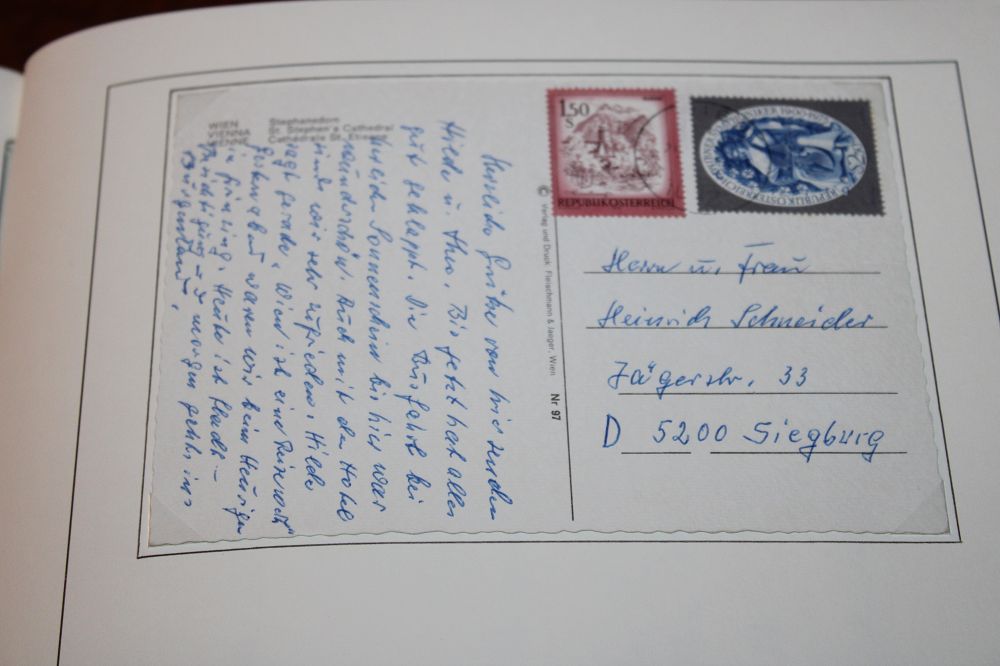 WIEN
VIENNA
VIENNE
Stephansdom
St. Stephen's Cathedral
Cathédrale St. Etienne
Herzliche Grüße von hier senden
Hilde u. Theo. Bis jetzt hat alles
gut geklappt. Die Busfahrt bei
Sonnenschein bis hier war
wunderschön. Auch mit dem Hotel
sind wir sehr zufrieden. Hilde
sagt gerade, Wien ist eine Reise wert"
gestern abend waren wir beim Heurigen
in Grinzing. Heute ist Stadt-
besichtigung u. morgen geht's ins
Burgenland.
1.50
S
REPUBLIK ÖSTERREICH
REPUBLIK ÖSTERREICH
© Verlag und Druck Fleischmann & Jaeger, Wien Nr 97
Herrn u. Frau
Heinrich Schneider
Jägerstr. 33
D 5200 Siegburg